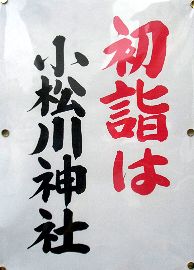 初詣は
小松川神社